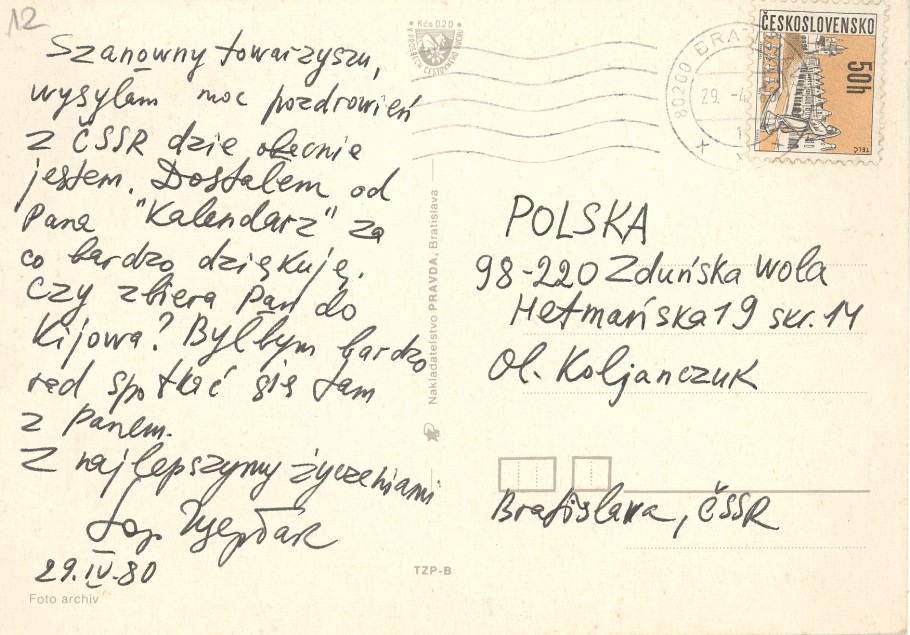 12
Szanowny towarzyszu,
wysyłam moc pozdrowień
z ČSSR dzie obecnie
jestem. Dostałem od
Pana "Kalendarz" za
co bardzo dziękuję.
Czy zbiera Pan do
Kijowa? Byłbym bardzo
rad spotkać się tam
z Panem.
Z najlepszymy życzeniami
29.IV.80
Foto archív
Kčs 0,20
Nakladateľstvo PRAVDA, Bratislava
TZP-B
80200 BRA
29. -4
ČESKOSLOVENSKO
50h
TELČ
POLSKA
98-220 Zduńska Wola
Hetmańska 19 skr. 14
Ol. Koljanczuk
Bratislava, ČSSR